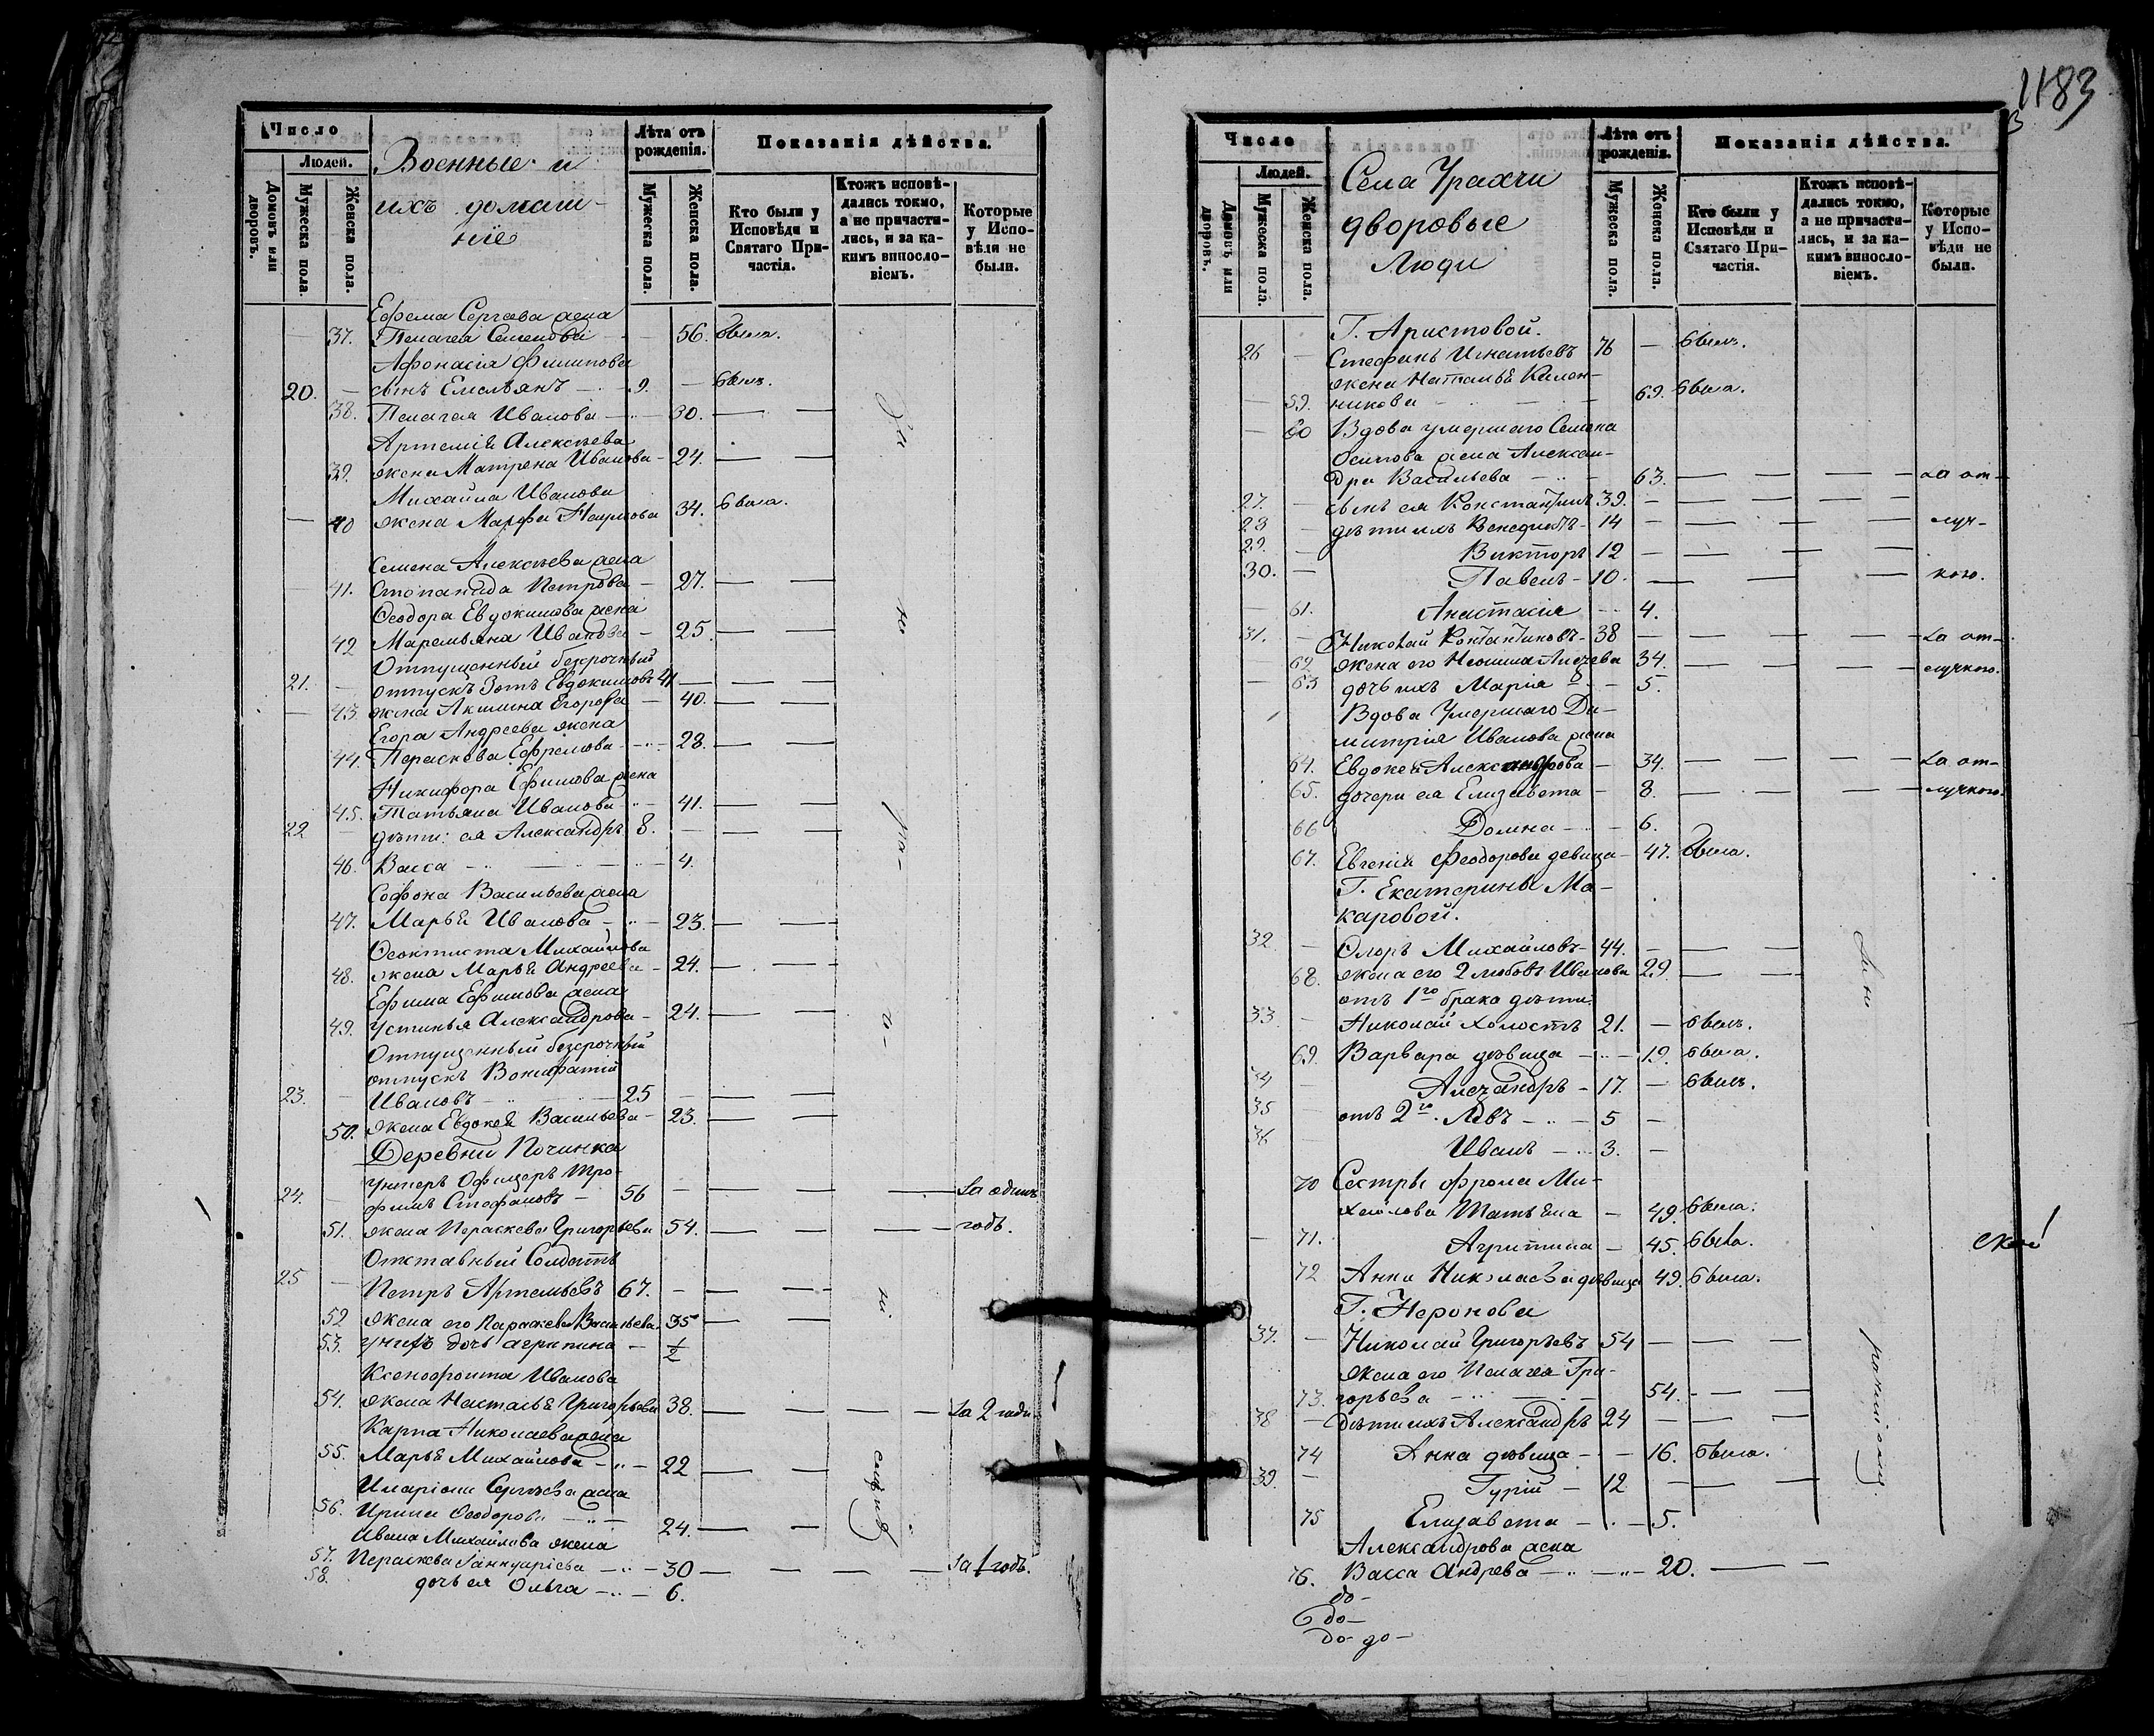 Число
Людей.
Домовъ или дворовъ.
Мужеска пола.
Женска пола.
Военные и
ихъ домаш-
ніе
Лѣта отъ рожденія.
Мужеска пола.
Женска пола.
Показанія дѣйства.
Кто были у Исповѣди и Святаго Причастія.
Ктожъ исповѣдались токмо, а не причастились, и за какимъ винословіемъ.
Которые у Исповѣди не были.
Ефема Сергѣева жена
37. Пелагея Семенова 56. была.
Афонасія Филипова
20. сынъ Емельянъ 9. былъ.
38. Пелагея Иванова 30.
Артемія Алексѣева
39. жена Матрена Иванова 24.
Михайла Иванова
40 жена Марфа Наумова 34. была.
Семена Алексѣева жена
41. Степанида Петрова 27.
Ѳеодора Евдокимова жена
42 Маремьяна Иванова 25.
Отпущенный безрочный
21. отпускъ Зотъ Евдокимовъ 41
43. жена Акилина Егорова 40.
Егора Андреева жена
44. Параскева Ефремова 28.
Никифора Ефимова жена
45. Татьяна Иванова 41.
22 дѣти: ея Александръ 8.
46. Васса 4.
Софона Васильева жена
47. Марья Иванова 23.
Ѳеоктиста Михайлова
48. жена Марья Андреева 24.
Ефима Ефимова жена
49. Устинья Александрова 24.
Отпущенный безрочный
отпускъ Вонифатій
23. Ивановъ 25
50. жена Евдокея Васильева 23.
Деревни Починка
Унтеръ Офицеръ Тро-
24. фимъ Стефановъ 56 за одинъ
51. жена Параскева Григорьева 54. годъ.
Отставный Солдатъ
25 Петръ Артемьевъ 67.
52 жена его Параскева Васильева 35
53. у нихъ дочь Агрипина 1/2
Ксенофонта Иванова
54. жена Наталья Григорьева 38. за 2 года
Карпа Николаева жена
55. Марья Михайлова 22
Иларіона Сергѣева жена
56. Ирина Ѳеодорова 24.
Ивана Михайлова жена
57. Параскева Іаннуаріева 30 за 1 годъ.
58. дочь ея Ольга 6.
1183
Число
Людей.
Домовъ или дворовъ.
Мужеска пола.
Женска пола.
Села Урахчи
дворовые
Люди
Лѣта отъ рожденія.
Мужеска пола.
Женска пола.
Показанія дѣйства.
Кто были у Исповѣди и Святаго Причастія.
Ктожъ исповѣдались токмо, а не причастились, и за какимъ винословіемъ.
Которые у Исповѣди не были.
Г. Аристовой.
26 Стефанъ Игнатьевъ 76 былъ.
жена Наталья Кален-
59. никова 69. была.
60 Вдова умершаго Семена
Осипова жена Алексан-
дра Васильева 63. за от-
27. сынъ ея Константинъ 39.
28 дѣти ихъ Венедиктъ 14 луч-
29. Викторъ 12
30. Павелъ 10. кою.
61. Анастасія 4.
31. Николай Контантиновъ 38 за от-
62 жена его 34. лучкою.
63 дочь ихъ Марія 5.
Вдова Умершаго Ди-
митрія Иванова жена
64. Евдокея Александрова 34. за от-
65. дочери ея Елизавета 8. лучкою.
66 Домна 6.
67. Евгенія Феодорова девица 47. была.
Г. Екатерины Ма-
каровой.
32 Флоръ Михайловъ 44.
68. жена его 2 Любовь Иванова 29.
отъ 1го брака дѣти:
33 Николай холостъ 21. былъ.
69. Варвара дѣвица 19. была.
34 Алезандръ 17. былъ.
35 отъ 2го. Левъ 5
36 Иванъ 3.
70 Сестры Фрола Ми-
хайлова Татьяна 49. была.
71. Агрипина 45. была.
72 Анна Николаева дѣвица 49. была.
Г. Неронова
37. Николай Григорьевъ 54
жена его Пелагея Гри-
73. горьева 54.
38 дѣти ихъ Александръ 24
74 Анна дѣвица 16. была.
39. Гурій 12
75 Елизавета 5.
Александрова жена
76. Васса Андрева 20.
до-
до-
до-до-